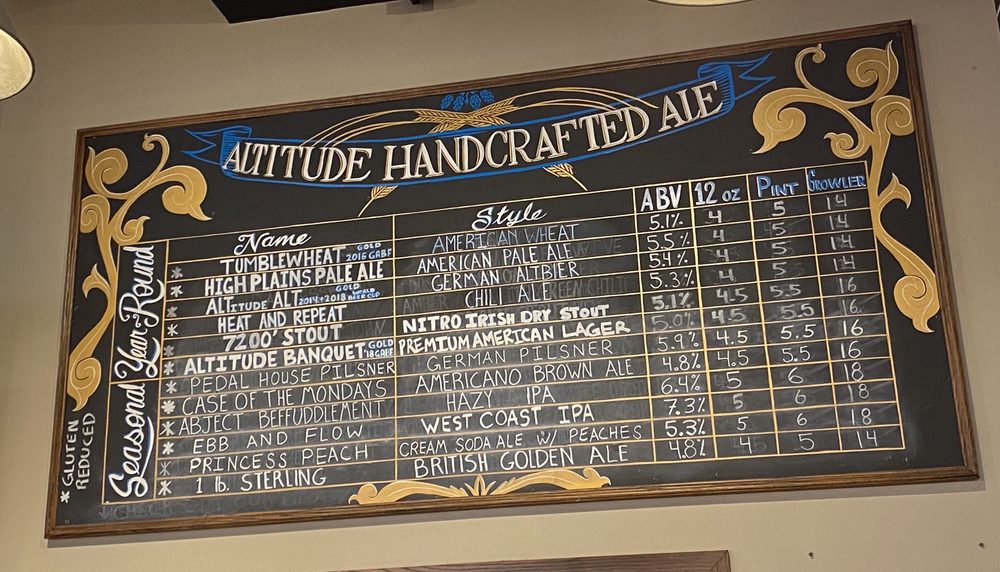 ALTITUDE HANDCRAFTED ALE
Name Style ABV 12 oz PINT GROWLER
* TUMBLEWHEAT GOLD 2016 GABF AMERICAN WHEAT 5.1% 4 5 14
* HIGH PLAINS PALE ALE AMERICAN PALE ALE 5.5% 4 5 14
* ALTITUDE ALT GOLD 2014+2018 WORLD BEER CUP GERMAN ALTBIER 5.4% 4 5 14
* HEAT AND REPEAT CHILI ALE 5.3% 4 5 14
* 7200' STOUT NITRO IRISH DRY STOUT 5.1% 4.5 5.5 16
* ALTITUDE BANQUET GOLD '18 GABF PREMIUM AMERICAN LAGER 5.0% 4.5 5.5 16
* PEDAL HOUSE PILSNER GERMAN PILSNER 5.9% 4.5 5.5 16
* CASE OF THE MONDAYS AMERICANO BROWN ALE 4.8% 4.5 5.5 16
* ABJECT BEFFUDDLEMENT HAZY IPA 6.4% 5 6 18
* EBB AND FLOW WEST COAST IPA 7.3% 5 6 18
* PRINCESS PEACH CREAM SODA ALE W/ PEACHES 5.3% 5 6 18
* 1 lb. STERLING BRITISH GOLDEN ALE 4.8% 4 5 14
Seasonal Year-Round
* GLUTEN
REDUCED